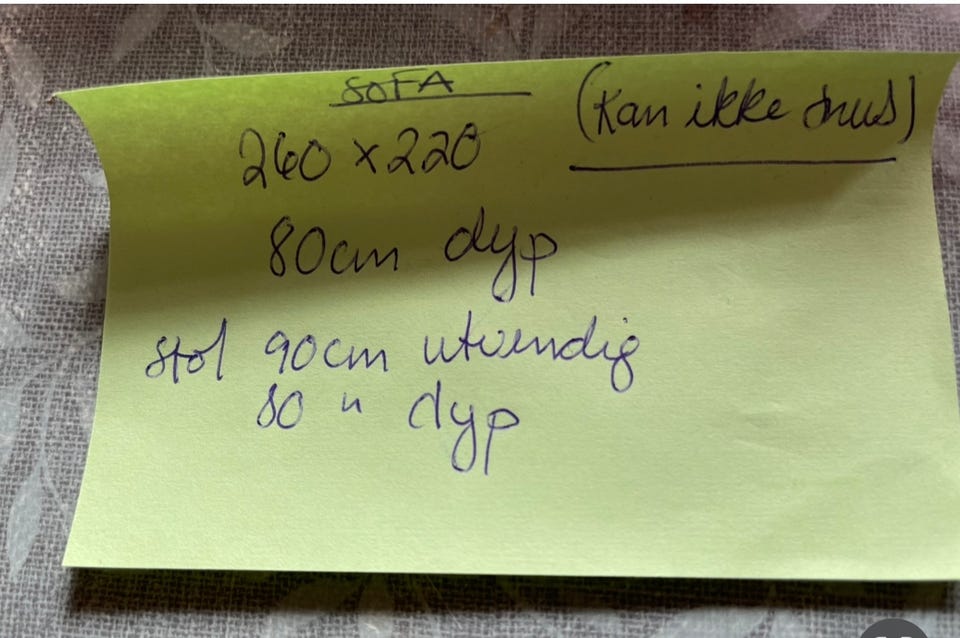 SOFA
(Kan ikke snus)
260 x 220
80cm dyp
stol 90cm utvendig
80 " dyp